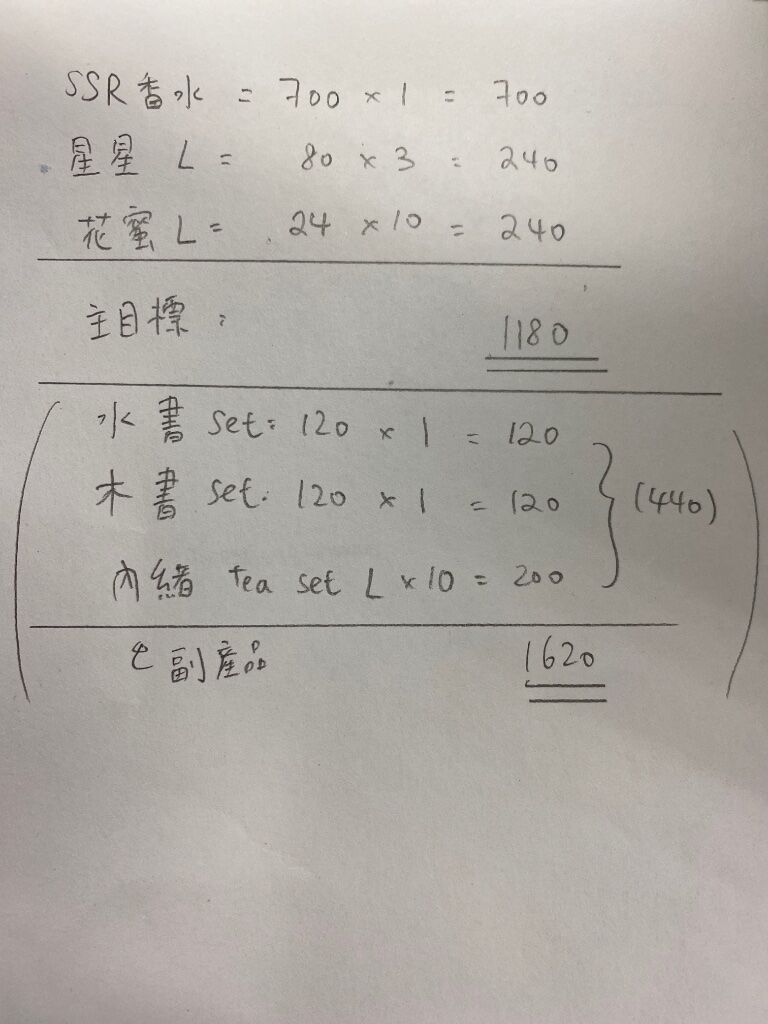 SSR香水 = 700 × 1 = 700
星星 L = 80 × 3 = 240
花蜜 L = 24 × 10 = 240
主目標: 1180
水書 set: 120 × 1 = 120
木書 set: 120 × 1 = 120
(440)
內緒 tea set L × 10 = 200
副產品 1620